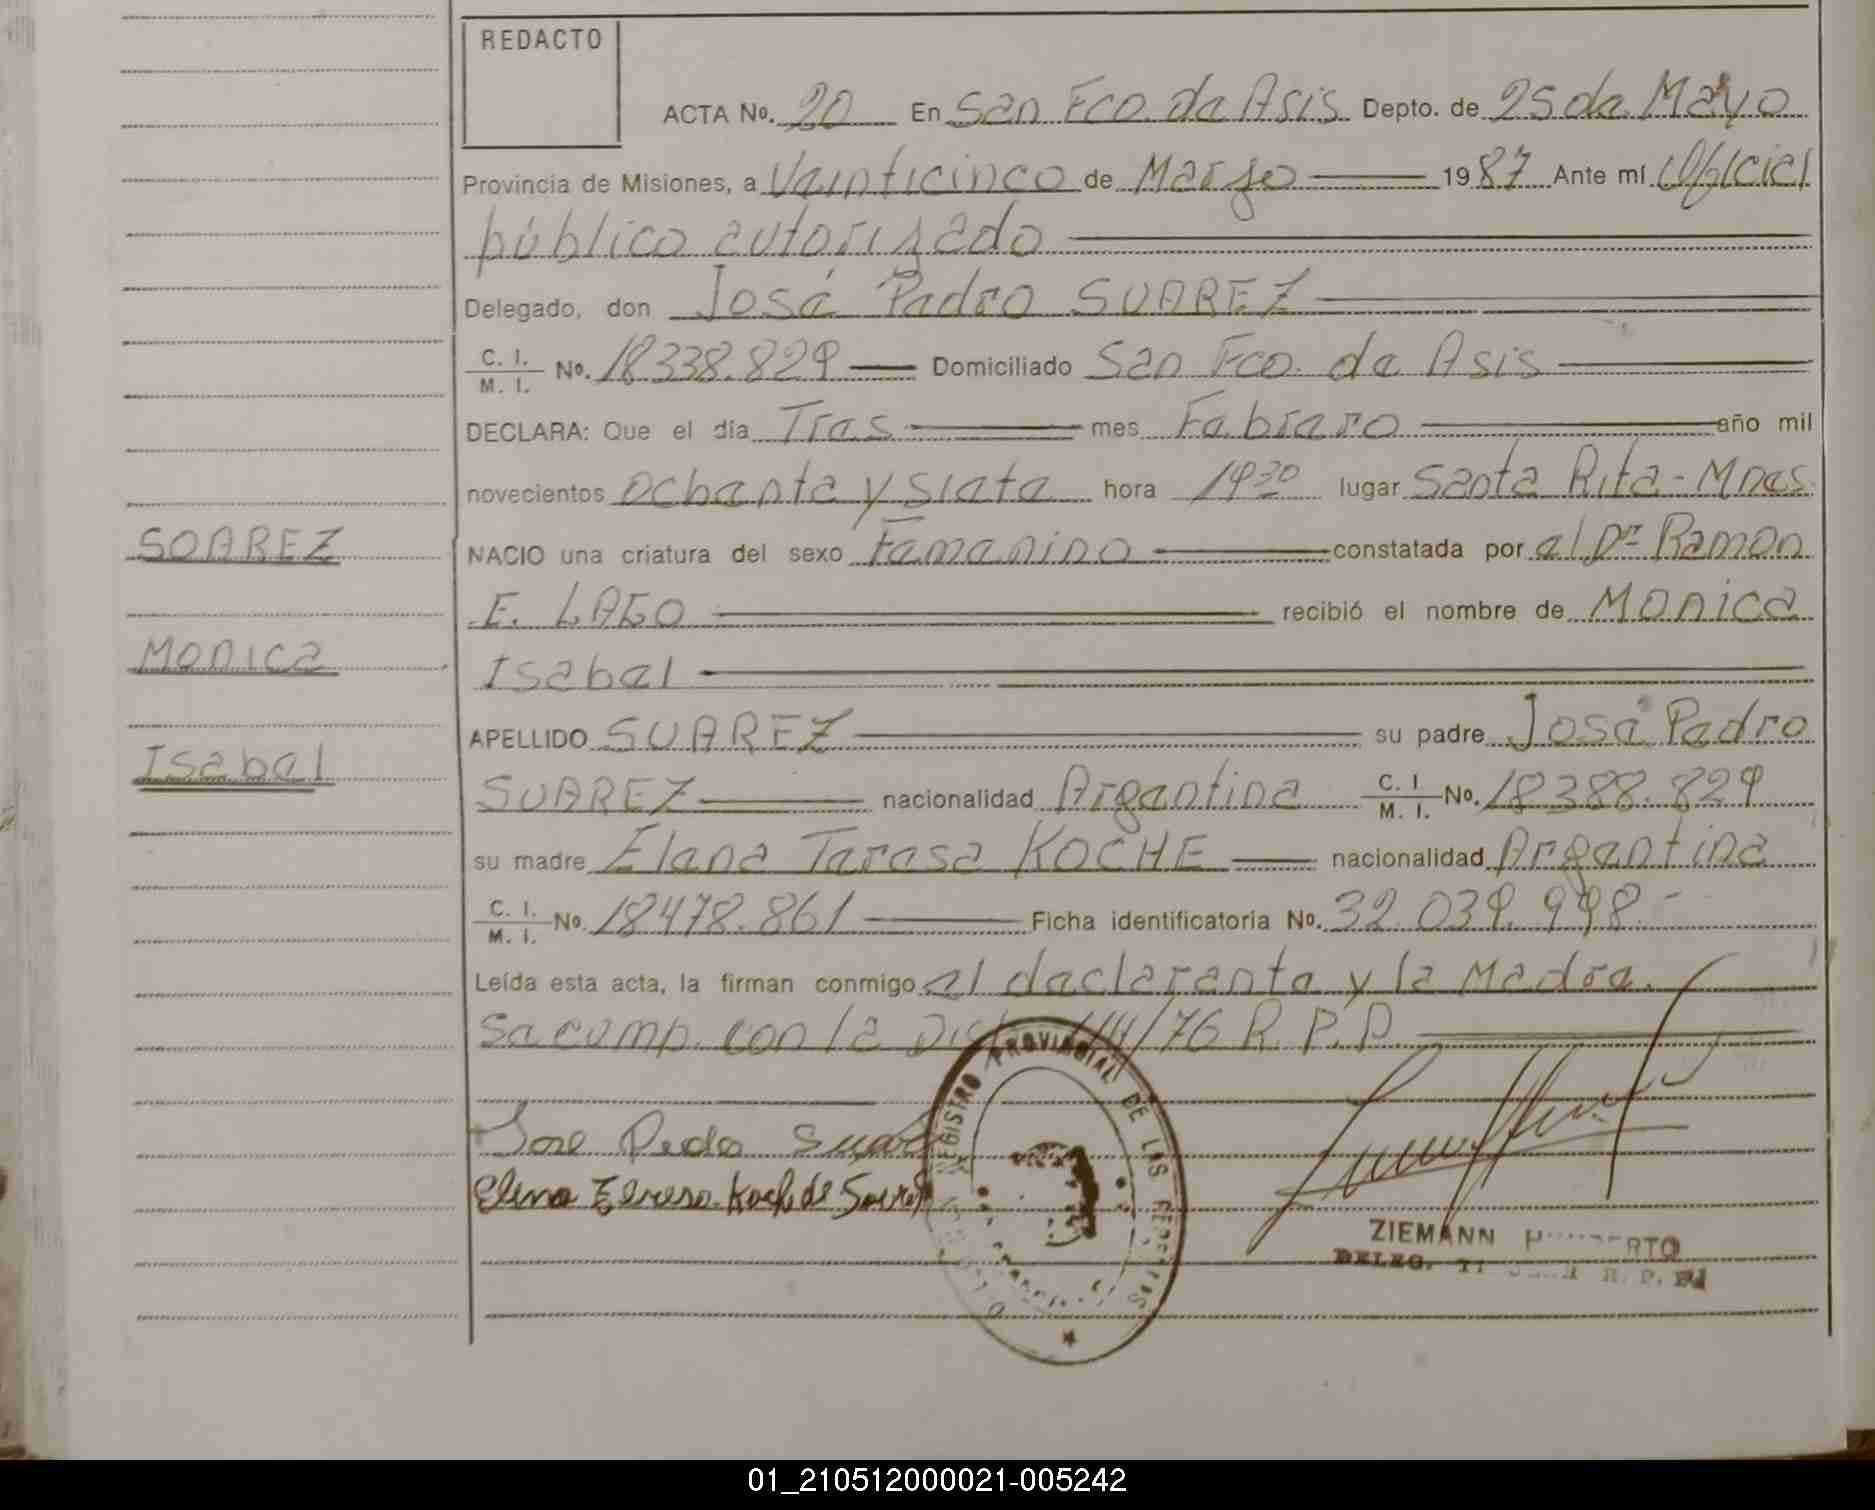 REDACTO
ACTA No. 20 En San Fco. de Asis Depto. de 25 de Mayo
Provincia de Misiones, a Veinticinco de Marzo 1987 Ante mí Oficial
público autorizado
Delegado, don José Pedro SUAREZ
C. I. M. I. No. 18338.829 Domiciliado San Fco. de Asis
DECLARA: Que el día Tres mes Febrero año mil
novecientos ochenta y siete hora 1930 lugar Santa Rita - Mnes.
SUAREZ
NACIO una criatura del sexo Femenino constatada por el Dr Ramon
E. LAGO recibió el nombre de Monica
Monica
Isabel
APELLIDO SUAREZ su padre José Pedro
Isabel
SUAREZ nacionalidad Argentina C. I M. I. No. 18388.829
su madre Elena Teresa KOCHE nacionalidad Argentina
C. I. M. I. No. 18478.861 Ficha identificatoria No. 32.039.998.-
Leída esta acta, la firman conmigo el declarante y la Madre.
Se cump. con la /76 R. P. P.
Jose Pedro Suarez
Elena Teresa Koch de Suarez
REGISTRO PROVINCIAL DE LAS PERSONAS
ZIEMANN
DELEG. R. P. P.
01_210512000021-005242